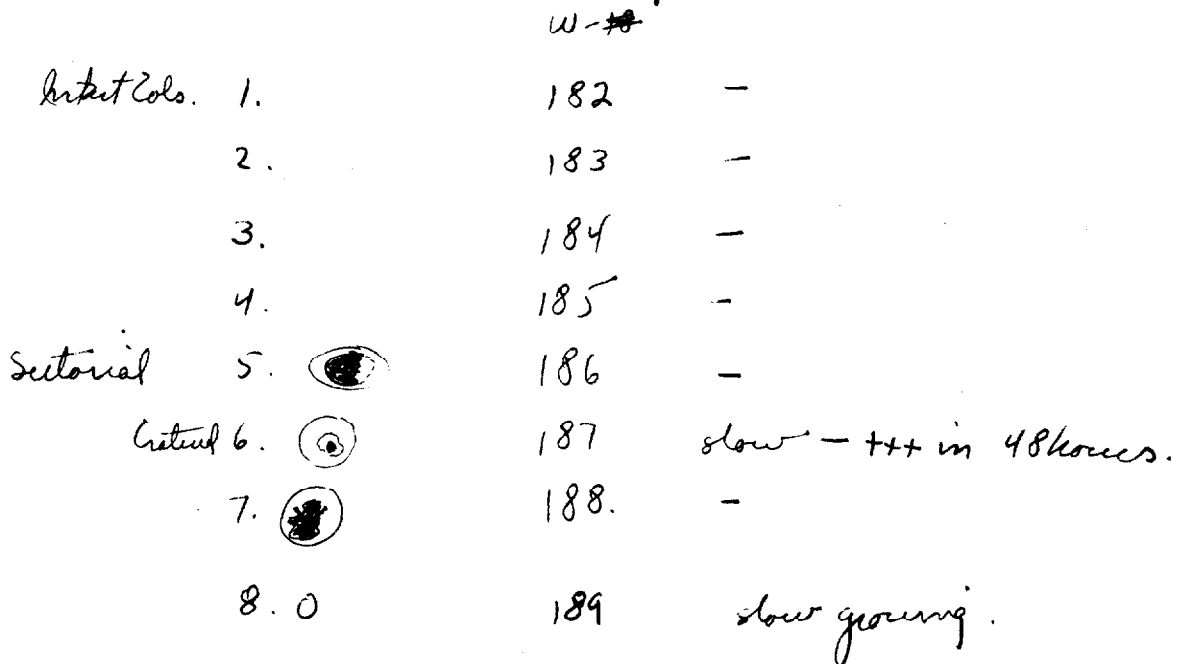 W-
Intact Cols. 1. 182 -
2. 183 -
3. 184 -
4. 185 -
Sectorial 5. 186 -
6. 187 slow - +++ in 48 hours.
7. 188. -
8. 0 189 slow growing.